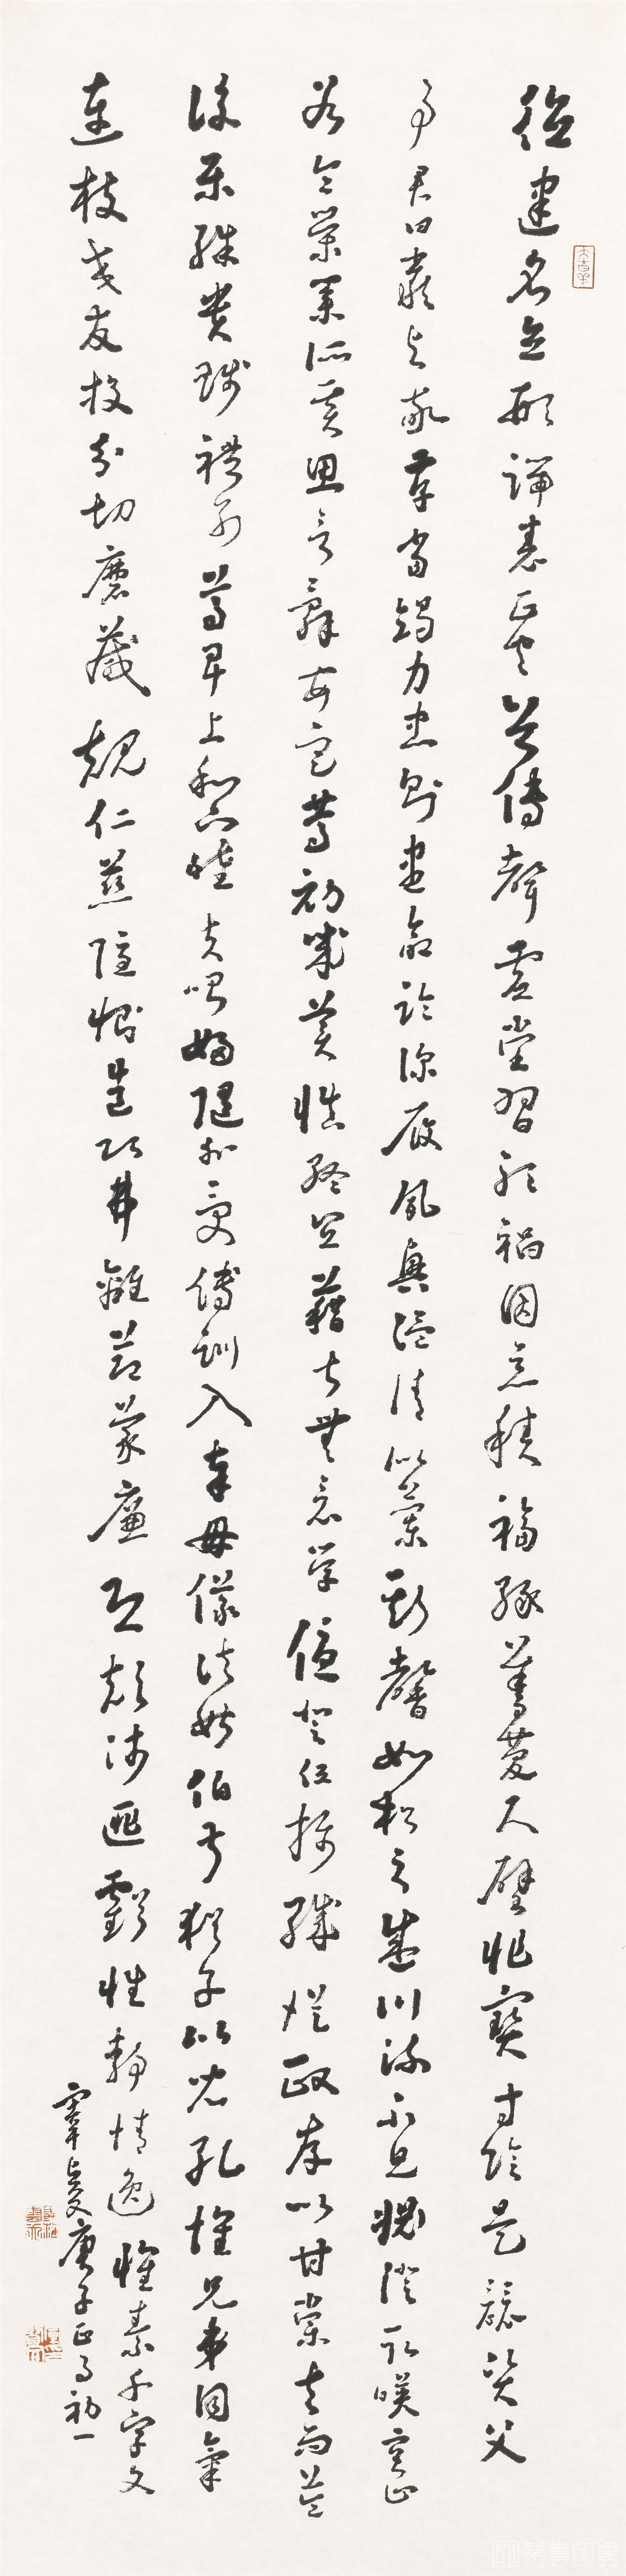 德建名立形端表正空谷傳聲虛堂習聽禍因惡積福緣善慶尺璧非寶寸陰是競資父
事君曰嚴與敬孝當竭力忠則盡命臨深履夙興溫清似蘭斯馨如松之盛川流不息淵澄取暎容止
若令榮業所基思言辭安定篤初誠美慎終宜藉甚無竟學優登仕攝職從政存以甘棠去而益
詠樂殊貴賤禮別尊卑上和下睦夫唱婦隨外受傅訓入奉母儀諸姑伯叔猶子比兒孔懷兄弟同氣
連枝交友投分切磨箴規仁慈隱惻造次弗離節義廉退顛沛匪虧性靜情逸懷素千字文
庚子正月初一